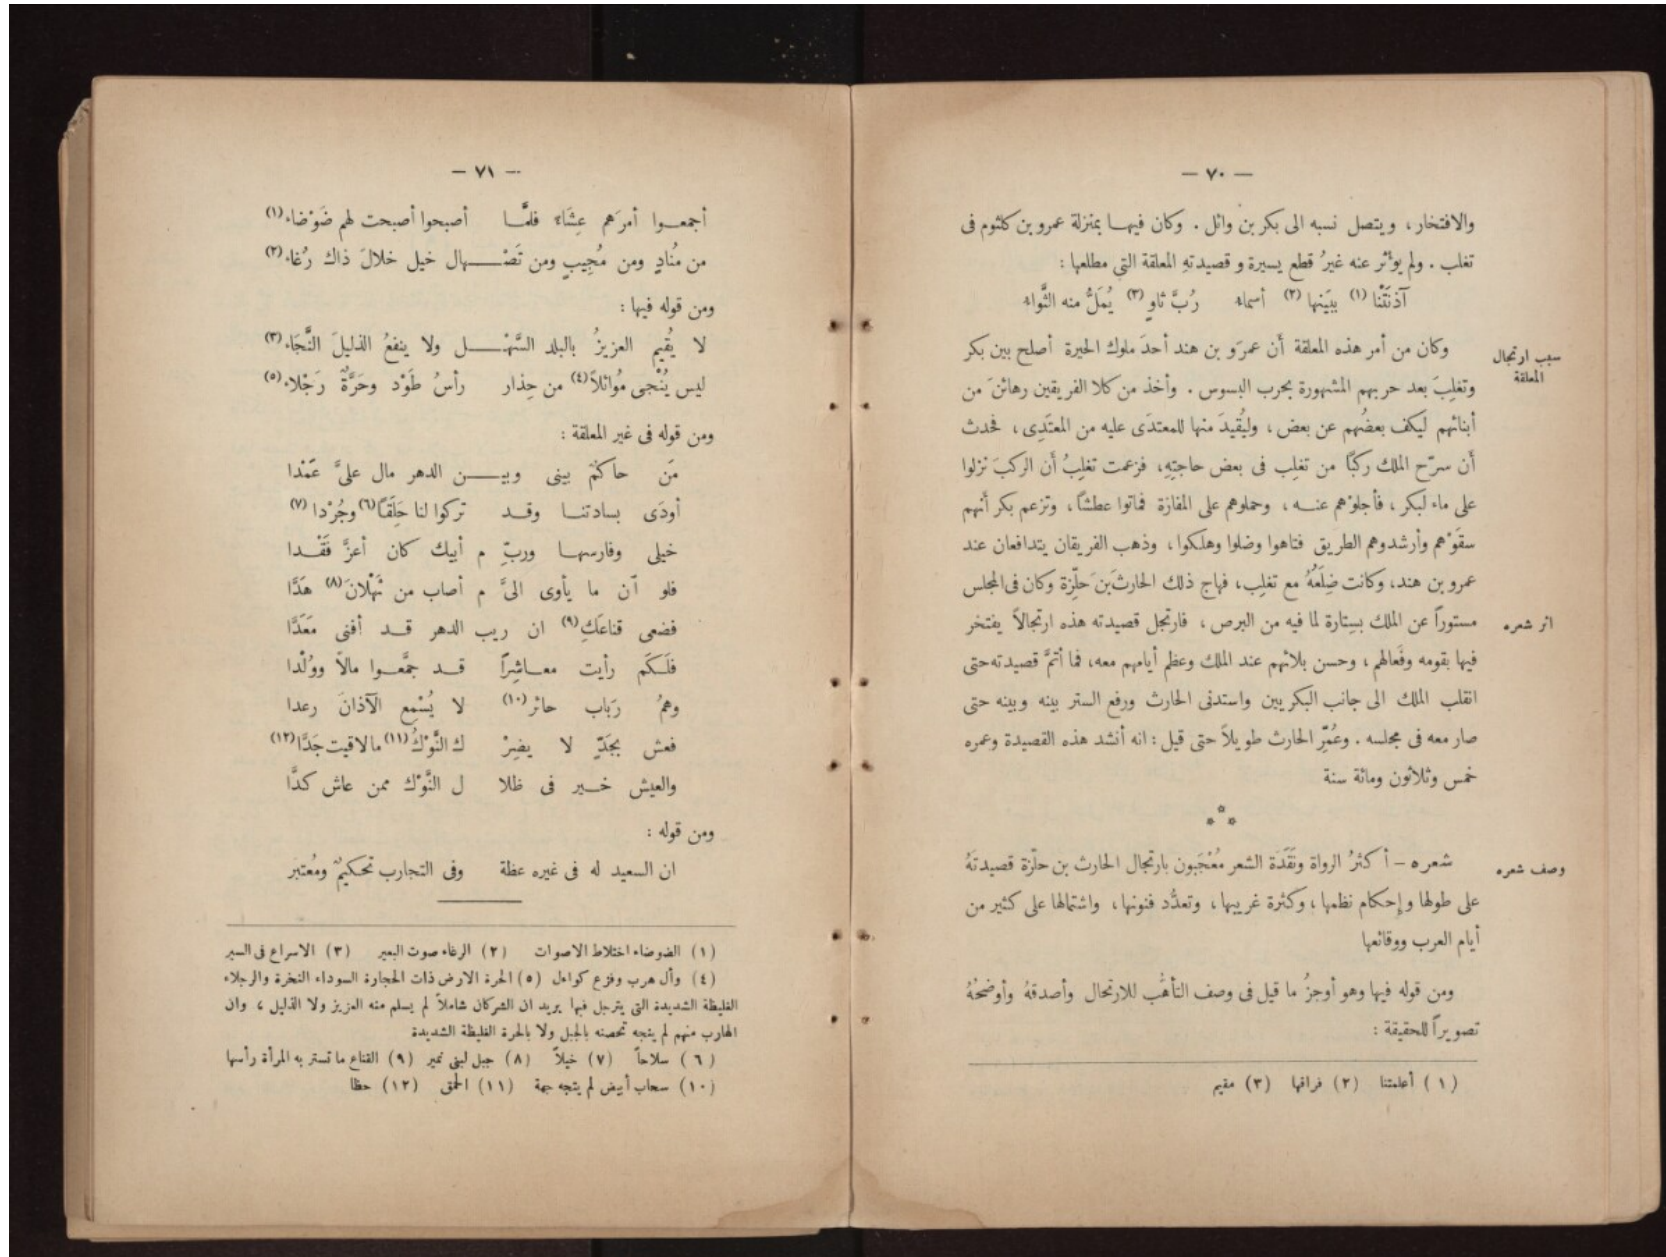 — ٧٠ —
والافتخار، ويتصل نسبه الى بكر بن وائل . وكان فيهـا بمنزلة عمرو بن كلثوم فى
تغلب . ولم يؤثر عنه غيرُ قطع يسيرة وقصيدتهِ المعلقة التى مطلعها :
آذنَتْنا (١) ببَينها (٢) أسماءُ رُبَّ ثاوٍ (٣) يُمَلُّ منه الثَّواءُ
سبب ارتجال
المعلقة
وكان من أمر هذه المعلقة أَن عمرَو بن هند أحدَ ملوك الحيرة أصلح بين بكر
وتغلِبَ بعد حربهم المشهورة بحرب البسوس . وأخذ من كلا الفريقين رهائنَ من
أبنائهم ليكف بعضُهم عن بعض ، وليُقيدَ منها للمعتدَى عليه من المعتَدِى ، فحدث
أَن سرّح الملك ركبًا من تغلِب فى بعض حاجتِهِ، فزعمت تغلِبُ أَن الركبَ نزلوا
على ماء لبكر ، فأجلوْهم عنـه ، وحملوهم على المفازة فماتوا عطشًا ، وتزعم بكر أنهم
سقوْهم وأرشدوهم الطريق فتاهوا وضلوا وهلكوا ، وذهب الفريقان يتدافعان عند
عمرو بن هند، وكانت ضِلَعُهُ مع تغلِب، فهاج ذلك الحارثَ بنَ حلّزِة وكان فى المجلس
اثر شعره
مستوراً عن الملك بسِتارة لما فيه من البرص ، فارتجل قصيدته هذه ارتجالاً يفتخر
فيها بقومه وفَعالهم ، وحسن بلائهم عند الملك وعظم أيامهم معه، فما أتمَّ قصيدته حتى
انقلب الملك الى جانب البكريين واستدنى الحارث ورفع الستر بينه وبينه حتى
صار معه فى مجلسه . وعُمِّر الحارث طويلاً حتى قيل : انه أنشد هذه القصيدة وعمره
خمس وثلاثون ومائة سنة
* * *
وصف شعره
شعره – أكثرُ الرواة ونَقَدَة الشعر مُعْجَبون بارتجال الحارث بن حلّزة قصيدتَهُ
على طولها وإِحكام نظمها ، وكثرة غريبها ، وتعدُّد فنونها ، واشتمالها على كثير من
أيام العرب ووقائعها
ومن قوله فيها وهو أوجزُ ما قيل فى وصف التأهُّب للارتحال وأصدقهُ وأوضحُهُ
تصويراً للحقيقة :
(١) أعلمتنا (٢) فراقها (٣) مقيم
— ٧١ —
أجمعـوا أمرَهم عِشَاءً فلمَّـا أصبحوا أصبحت لهم ضَوْضاء (١)
من مُنادٍ ومن مُجِيبٍ ومن تَصْـهال خيل خلالَ ذاك رُغاء (٢)
ومن قوله فيها :
لا يُقيم العزيزُ بالبلد السَّهْـل ولا ينفعُ الذليلَ النَّجَاء (٣)
ليس يُنْجى مُوائلاً (٤) من حِذار رأسُ طَوْد وحَرَّةٌ رَجْلاء (٥)
ومن قوله فى غير المعلقة :
مَن حاكمٌ بينى وبيـن الدهر مال علىَّ عَمْدا
أودَى بسادتنـا وقـد تركوا لنا حَلِقًا (٦) وجُرْدا (٧)
خيلى وفارسهـا وربِّ م أبيك كان أعزَّ فَقْـدا
فلو أن ما يأوى الىَّ م أصاب من ثَهْلانَ (٨) هَدَّا
فضعى قناعَكِ (٩) ان ريب الدهر قـد أفنى مَعَدَّا
فَلَـكَم رأيت معـاشِراً قـد جمَّعـوا مالاً ووُلْدا
وهمُ رَباب حائر (١٠) لا يُسْمِع الآذانَ رعدا
فعش بجَدّ لا يضِرْ ك النَّوْكُ (١١) مالاقيت جَدَّا (١٢)
والعيش خـير فى ظلا ل النَّوْك ممن عاش كدَّا
ومن قوله :
ان السعيد له فى غيره عظة وفى التجارب تحكيمٌ ومُعتبَر
(١) الضوضاء اختلاط الاصوات (٢) الرغاء صوت البعير (٣) الاسراع فى السير
(٤) وأل هرب وفزع كواءل (٥) الحرة الارض ذات الحجارة السوداء النخرة والرجلاء
الغليظة الشديدة التى يترجل فيها يريد ان الشركان شاملاً لم يسلم منه العزيز ولا الذليل ، وان
الهارب منهم لم ينجه تحصنه بالجبل ولا بالحرة الغليظة الشديدة
(٦) سلاحاً (٧) خيلاً (٨) جبل لبنى نمير (٩) القناع ما تستر به المرأة رأسها
(١٠) سحاب أبيض لم يتجه جهة (١١) الحمق (١٢) حظا